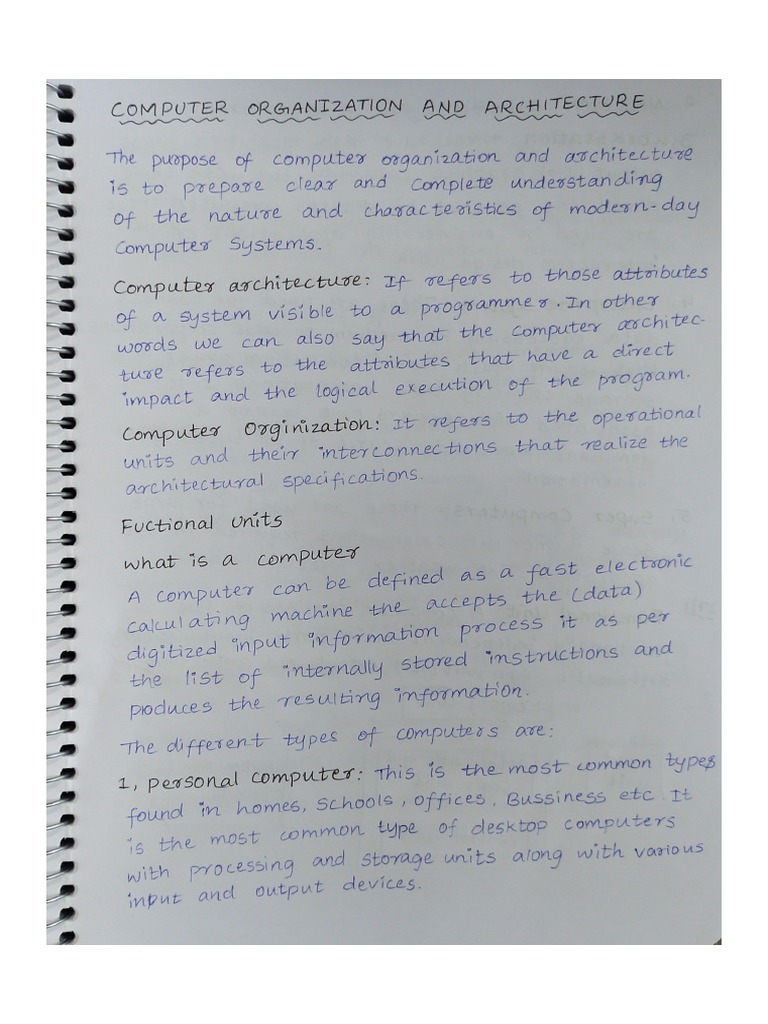 COMPUTER ORGANIZATION AND ARCHITECTURE
The purpose of computer organization and architecture
is to prepare clear and complete understanding
of the nature and characteristics of modern-day
Computer Systems.
Computer architecture: If refers to those attributes
of a system visible to a programmer. In other
words we can also say that the computer architec-
ture refers to the attributes that have a direct
impact and the logical execution of the program.
Computer Orginization: It refers to the operational
units and their interconnections that realize the
architectural specifications.
Fuctional units
what is a computer
A computer can be defined as a fast electronic
calculating machine the accepts the (data)
digitized input information process it as per
the list of internally stored instructions and
produces the resulting information.
The different types of computers are:
1, personal computer: This is the most common types
found in homes, schools, offices, Bussiness etc It
is the most common type of desktop computers
with processing and storage units along with various
input and output devices.